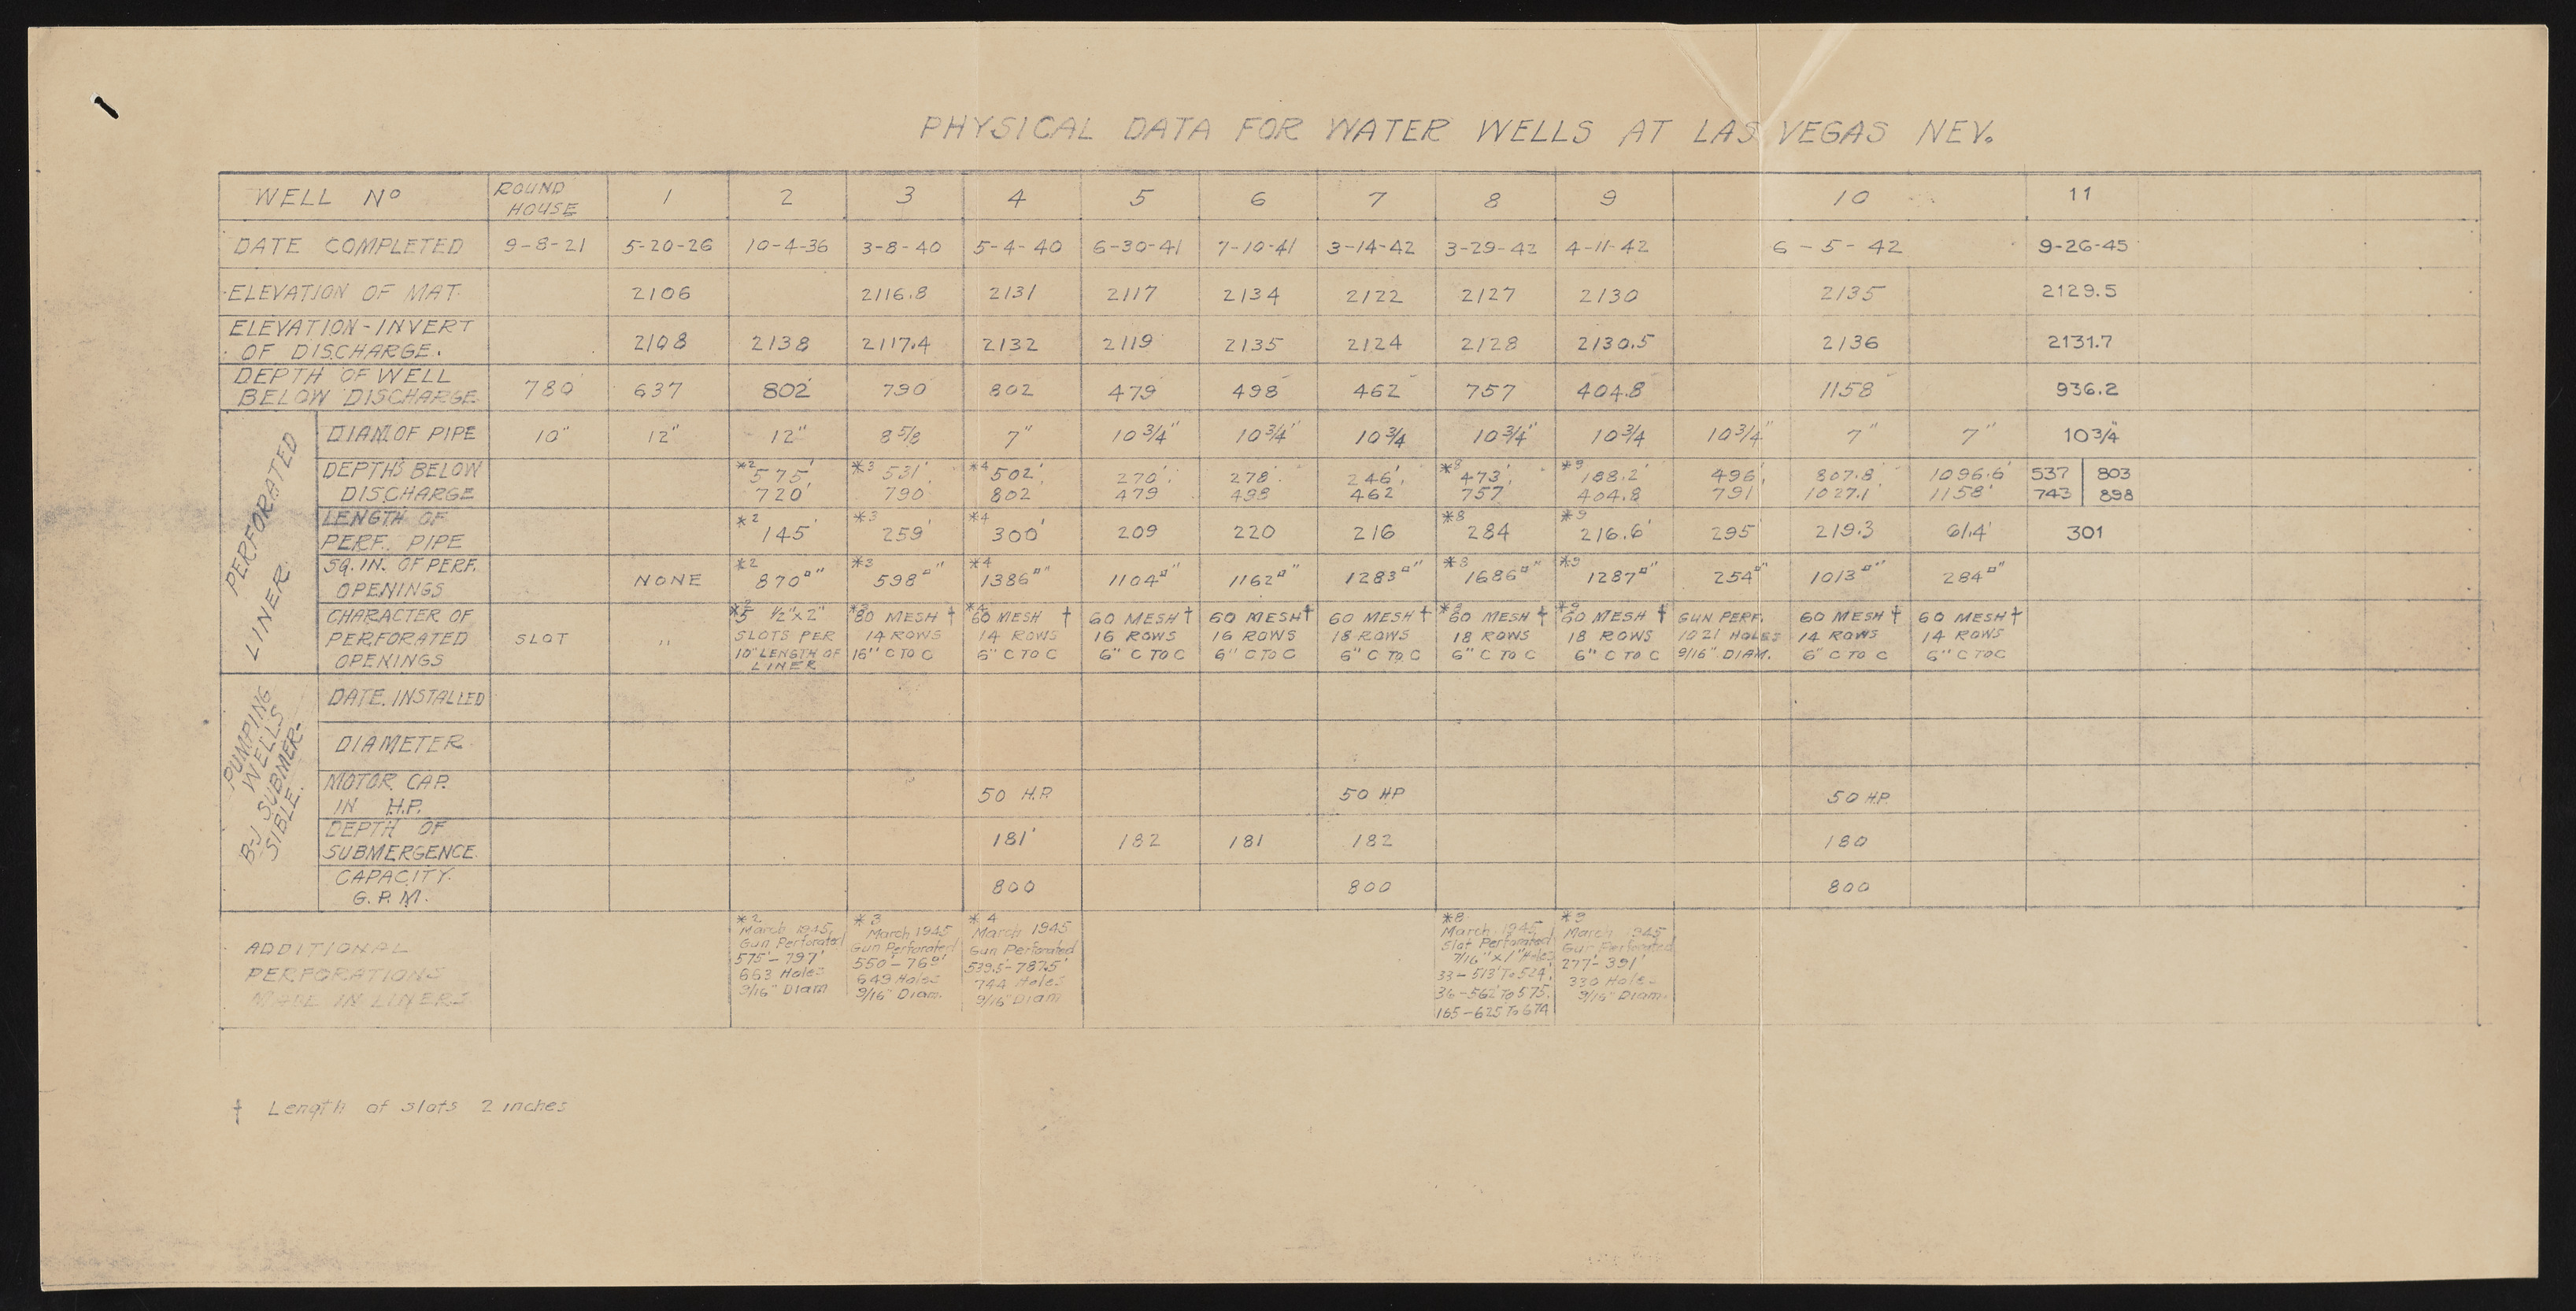 PHYSICAL DATA FOR WATER WELLS AT LAS VEGAS NEV.
WELL Nº ROUND HOUSE 1 2 3 4 5 6 7 8 9 10 11
DATE COMPLETED 9-8-21 5-20-26 10-4-36 3-8-40 5-4-40 6-30-41 7-10-41 3-14-42 3-29-42 4-11-42 6-5-42 9-26-45
ELEVATION OF MAT. 2106 2116.8 2131 2117 2134 2122 2127 2130 2135 2129.5
ELEVATION-INVERT
OF DISCHARGE. 2108 2138 2117.4 2132 2119 2135 2124 2128 2130.5 2136 2131.7
DEPTH OF WELL
BELOW DISCHARGE 780 637 802' 790 802 479 498 462 757 404.8 1158 936.2
PERFORATED
LINER.
DIAM. OF PIPE 10" 12" 12" 8 5/8 7" 10 3/4" 10 3/4" 10 3/4 10 3/4" 10 3/4 10 3/4" 7" 7" 10 3/4"
DEPTHS BELOW *2 575' *3 531' *4 502' 270' 278' 246' *8 473' *9 188.2' 496' 807.8' 1096.6' 537 803
DISCHARGE 720' 790 802 479 498 462 757 404.8 791 1027.1 1158' 743 898
LENGTH OF
PERF. PIPE *2 145' *3 259' *4 300' 209 220 216 *8 284 *9 216.6' 295' 219.3 61.4' 301
SQ. IN. OF PERF.
OPENINGS NONE *2 870□" *3 598□" *4 1386□" 1104□" 1162□" 1283□" *8 1686□" *9 1287□" 254□" 1013□" 284□"
CHARACTER OF *2 5 1/2"x2" *3 80 MESH † *4 60 MESH † 60 MESH † 60 MESH † 60 MESH † *8 60 MESH † *9 60 MESH † GUN PERF. 60 MESH † 60 MESH †
PERFORATED SLOT " SLOTS PER 14 ROWS 14 ROWS 16 ROWS 16 ROWS 18 ROWS 18 ROWS 18 ROWS 1021 HOLES 14 ROWS 14 ROWS
OPENINGS 10" LENGTH OF 16" C TO C 6" C TO C 6" C TO C 6" C TO C 6" C TO C 6" C TO C 6" C TO C 9/16" DIAM. 6" C TO C 6" C TO C
LINER
PUMPING
WELLS
B-J SUBMER-
SIBLE.
DATE. INSTALLED
DIAMETER
MOTOR CAP.
IN H.P. 50 H.P. 50 HP 50 H.P.
DEPTH OF
SUBMERGENCE 181' 182 181 182 180
CAPACITY.
G. P. M. 800 800 800
ADDITIONAL
PERFORATIONS
MADE IN LINERS
*2
March 1945,
Gun Perforated
575'-797'
663 Holes
9/16" Diam
*3
March 1945
Gun Perforated
550'-769'
649 Holes
9/16" Diam.
*4
March 1945
Gun Perforated
539.5-787.5'
744 Holes
9/16" Diam
*8
March, 1945,
Slot Perforated
7/16" x 1" Holes
33-513' To 524'
36-562' To 575.
165-625 To 674
*9
March 1945
Gun Perforated
277'-391'
330 Holes
9/16" Diam.
† Length of slots 2 inches